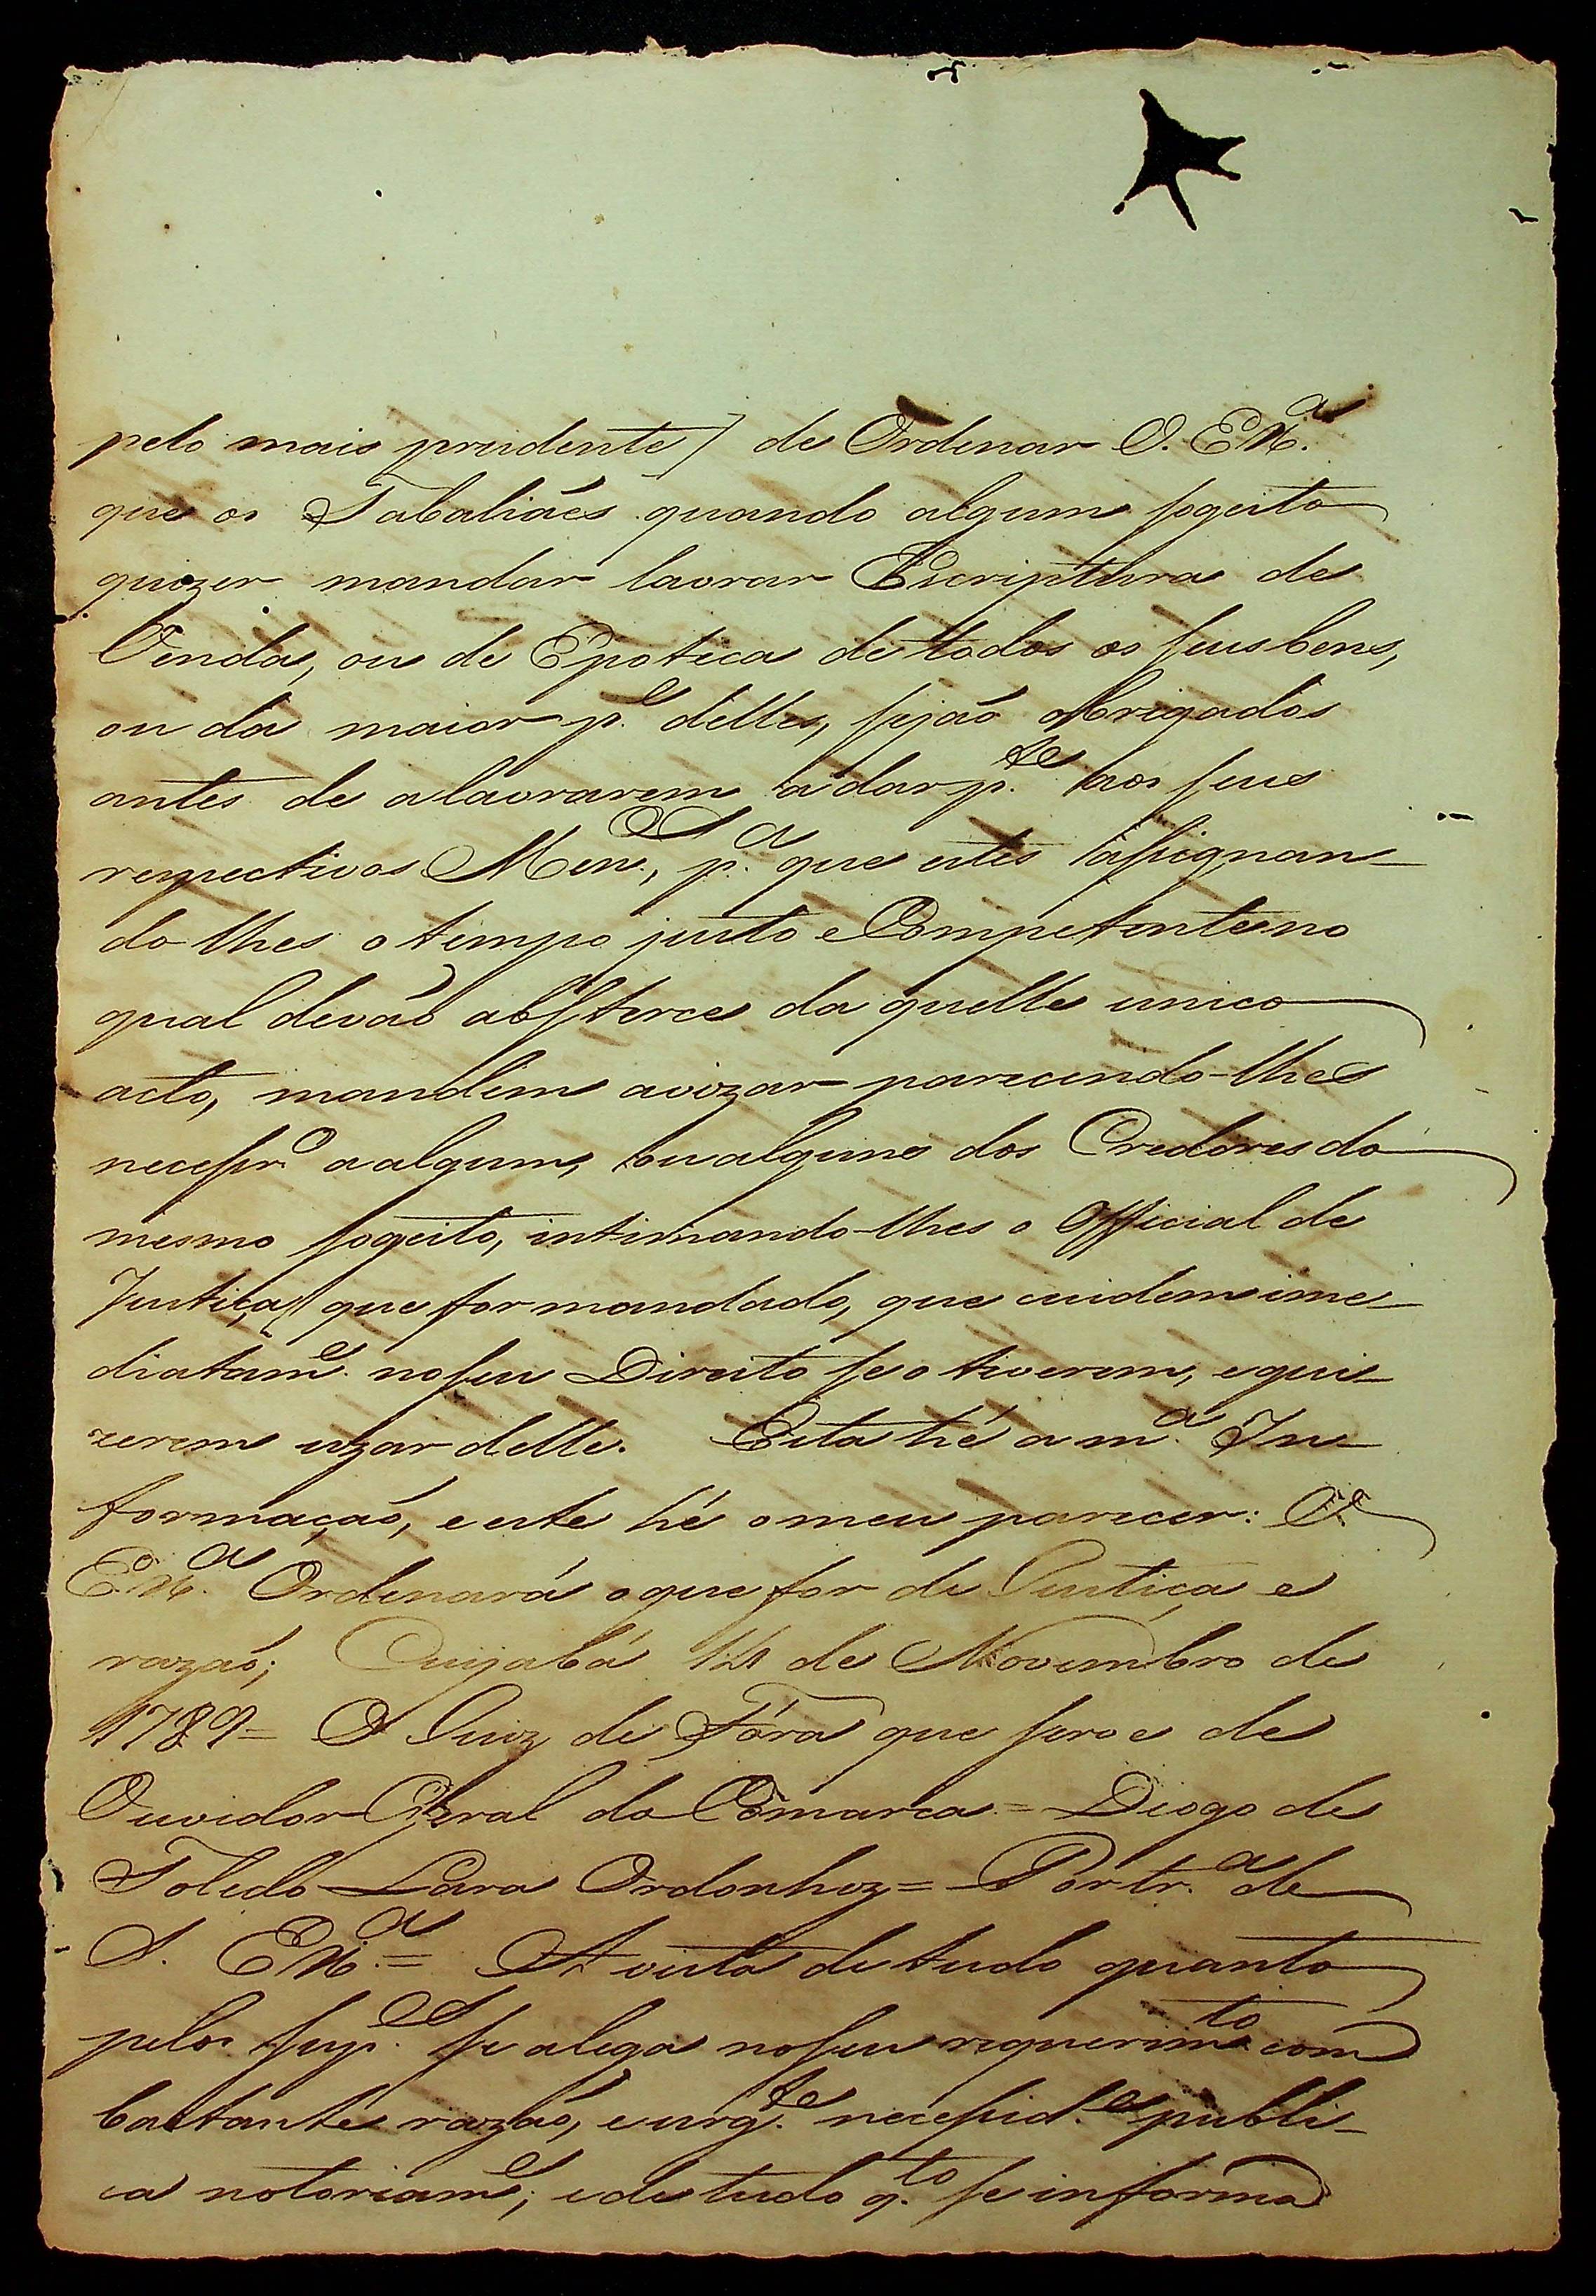 pelo mais prudente) de Ordenar V. Ex.ª
que os Tabaliaẽs quando algum sogeito
quizer mandar lavrar Escriptura de
Venda, ou de Epoteca de todos os seus bens,
ou da maior p.e delles, sejaõ obrigados
antes de alavrarem a dar p.te aos seus
respectivos Men.os, p.a que estes assignan-
do lhes o tempo justo e Competente no
qual devaõ absterce da quelle unico
acto, mandem avizar parecendo-lhes
necessr.o a algum, ou alguns dos Credores do
mesmo sogeito, intimando-lhes o Official de
Justiça, que for mandado, que cuidem ime-
diatam.e no seu Direito se o tiverem, e qui-
zerem uzar delle. Esta hé a m.a In-
formaçaõ, e este hé o meu parecer: V.
Ex.ª Ordenará o que for de Justiça e
razaõ; Cuyabá 14 de Novembro de
1789 = O Juiz de Fóra que serve de
Ouvidor Geral da Comarca = Diogo de
Toledo Lara Ordonhez = Portr.a de
S. Ex.ª = A vista de tudo quanto
pelos sup.es se alega no seu requerim.to com
bastante razaõ, e urg.te necessid.e publi-
ca notoriam.e; e de tudo q.to se informa